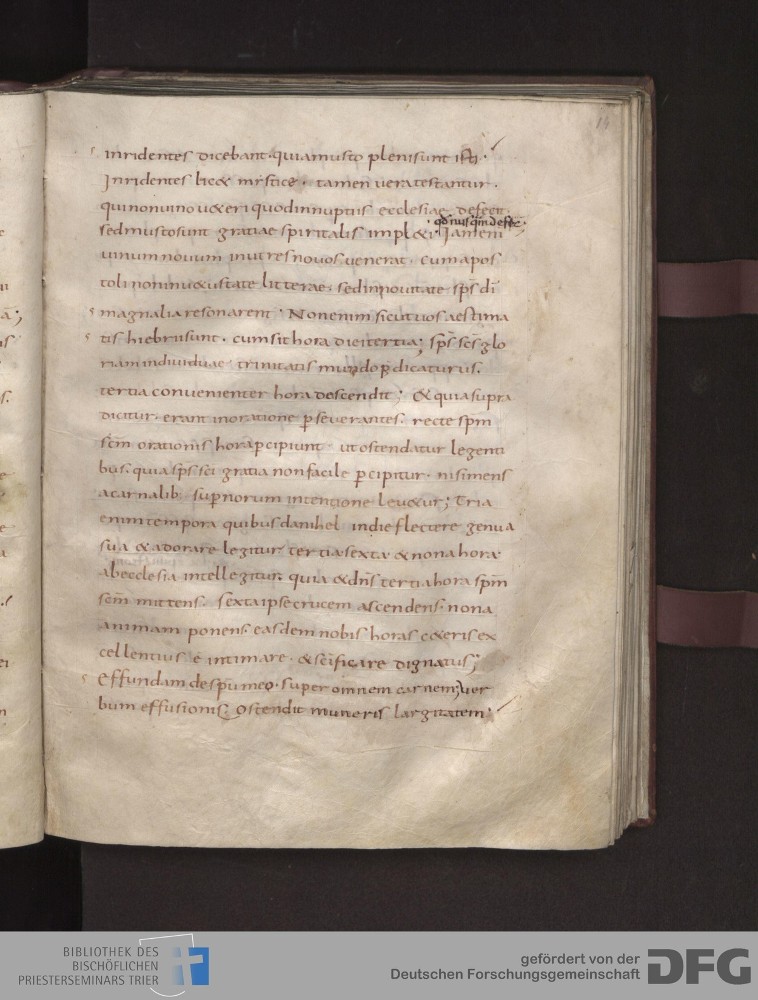 14
inridentes dicebant quia musto pleni sunt isti.
Inridentes licet mystice. tamen vera testantur.
qui non vino veteri quod in nuptiis ecclesiae defecit.
sed musto sunt gratiae spiritalis impleti. Iam enim
vinum novum in utres novos venerat. cum apos
toli non in vetustate litterae. sed in novitate sps di
magnalia resonarent; Non enim sicut vos aestima
tis hi ebrii sunt. cum sit hora diei tertia; sps scs glo
riam individuae trinitatis mundo pdicaturus.
tertia convenienter hora descendit; Et quia supra
dicitur. erant in oratione pseverantes. recte spm
scm orationis hora pcipiunt. ut ostendatur legenti
bus. quia sps sci gratia non facile pcipitur. nisi mens
a carnalib supnorum intentione levetur; Tria
enim tempora quibus danihel in die flectere genua
sua et adorare legitur tertia sexta et nona hora
ab ecclesia intellegitur. quia et dns tertia hora spm
scm mittens. sexta ipse crucem ascendens. nona
animam ponens. easdem nobis horas ceteris ex
cellentius e intimare. et scificare dignatus;
Effundam de spu meo. super omnem carnem; ver
bum effusionis. ostendit muneris largitatem;
BIBLIOTHEK DES
BISCHÖFLICHEN
PRIESTERSEMINARS TRIER
gefördert von der
Deutschen Forschungsgemeinschaft
DFG